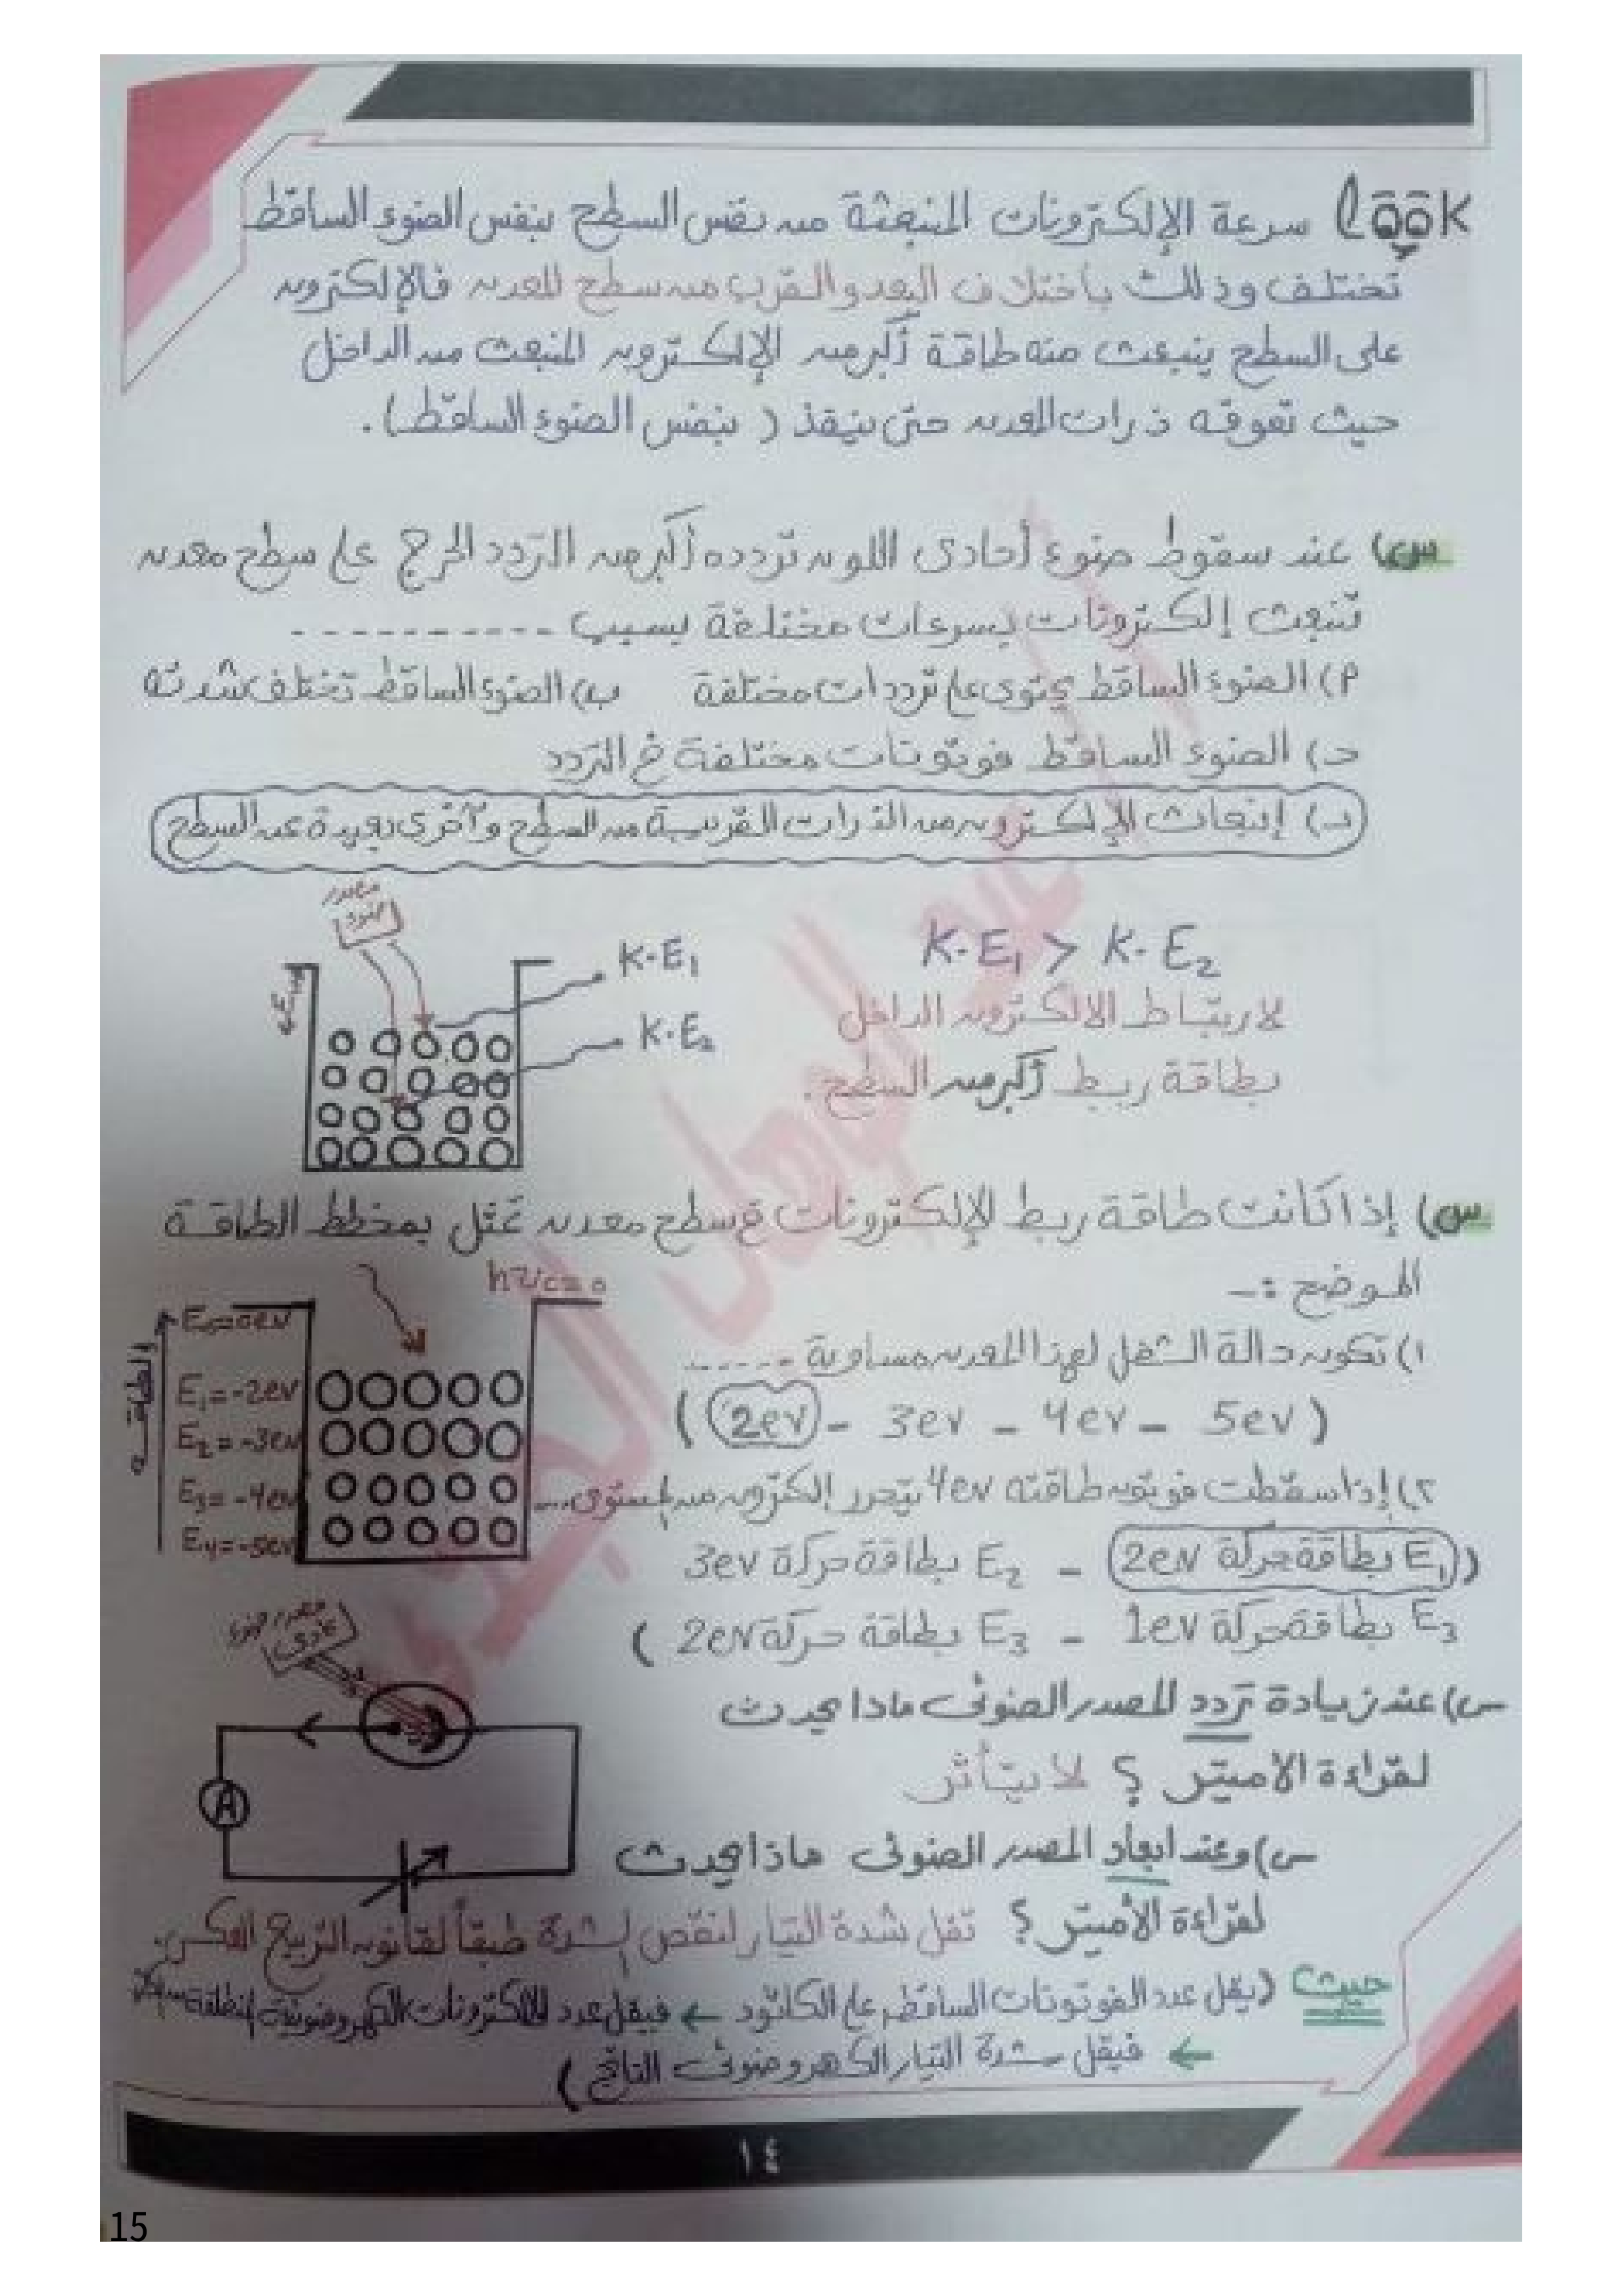 Look سرعة الإلكترونات المنبعثة من نفس السطح بنفس الضوء الساقط
تختلف وذلك بأختلاف البعد والقرب من سطح المعدن فالإلكترون
على السطح ينبعث منه طاقة أكبر من الإلكترون المنبعث من الداخل
حيث تعوقه ذرات المعدن حتى ينفذ (بنفس الضوء الساقط).
س) عند سقوط ضوء أحادى اللون تردده أكبر من التردد الحرج على سطح معدن
تنبعث إلكترونات بسرعات مختلفة بسبب ----------
أ) الضوء الساقط يحتوى على ترددات مختلفة ب) الضوء الساقط تختلف شدته
ج) الضوء الساقط فوتونات مختلفة في التردد
د) إنبعاث الإلكترون من الذرات القريبة من السطح وآخرى بعيدة عن السطح
مصدر
ضوء
K.E1
K.E2
K.E1 > K.E2
لارتباط الالكترون الداخل
بطاقة ربط أكبر من السطح.
س) إذا كانت طاقة ربط الإلكترونات في سطح معدن تمثل بمخطط الطاقة
الموضح :-
hνc=0
E0=0ev
E1=-2ev
E2=-3ev
E3=-4ev
E4=-5ev
الطاقة
١) تكون دالة الشغل لهذا المعدن مساوية ------
(2ev - 3ev - 4ev - 5ev)
٢) إذا سقطت فوتون طاقته 4ev يتحرر إلكترون من المستوى ....
(E1 بطاقة حركة 2ev - E2 بطاقة حركة 3ev
E3 بطاقة حركة 1ev - E3 بطاقة حركة 2ev)
مصدر ضوء
س) عند زيادة تردد المصدر الضوئى ماذا يحدث
لقراءة الاميتر ؟ لا يتأثر
A
س) وعند ابعاد المصدر الضوئى ماذا يحدث
لقراءة الأميتر ؟ تقل شدة التيار لنقص الشدة طبقاً لقانون التربيع العكسى.
حيث (يقل عدد الفوتونات الساقطه على الكاثود ← فيقل عدد الالكترونات الكهروضوئية المنطلقة
← فيقل شدة التيار الكهروضوئى الناتج)
١٤
15